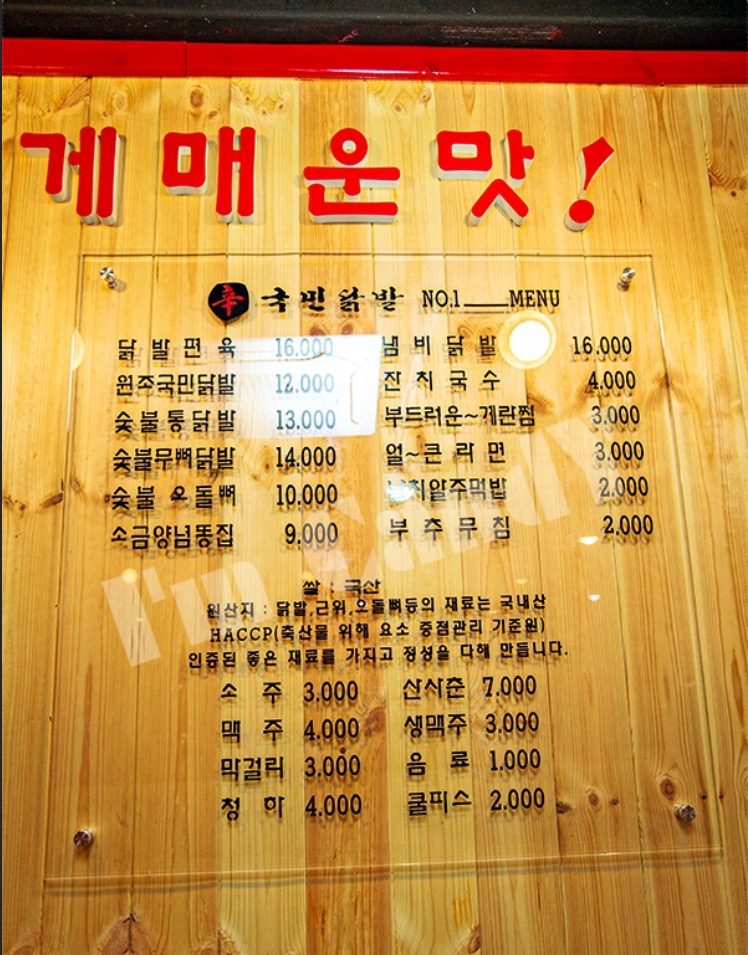 게매운맛!
辛 국민닭발 NO.1 MENU
닭발편육 16,000 냄비닭발 16,000
원조국민닭발 12,000 잔치국수 4,000
숯불통닭발 13,000 부드러운~계란찜 3,000
숯불무뼈닭발 14,000 얼~큰라면 3,000
숯불오돌뼈 10,000 날치알주먹밥 2,000
소금양념똥집 9,000 부추무침 2,000
쌀 : 국산
원산지 : 닭발,근위,오돌뼈등의 재료는 국내산
HACCP(축산물 위해 요소 중점관리 기준원)
인증된 좋은 재료를 가지고 정성을 다해 만듭니다.
소주 3,000 산사춘 7,000
맥주 4,000 생맥주 3,000
막걸리 3,000 음료 1,000
청하 4,000 쿨피스 2,000
I'm Candy